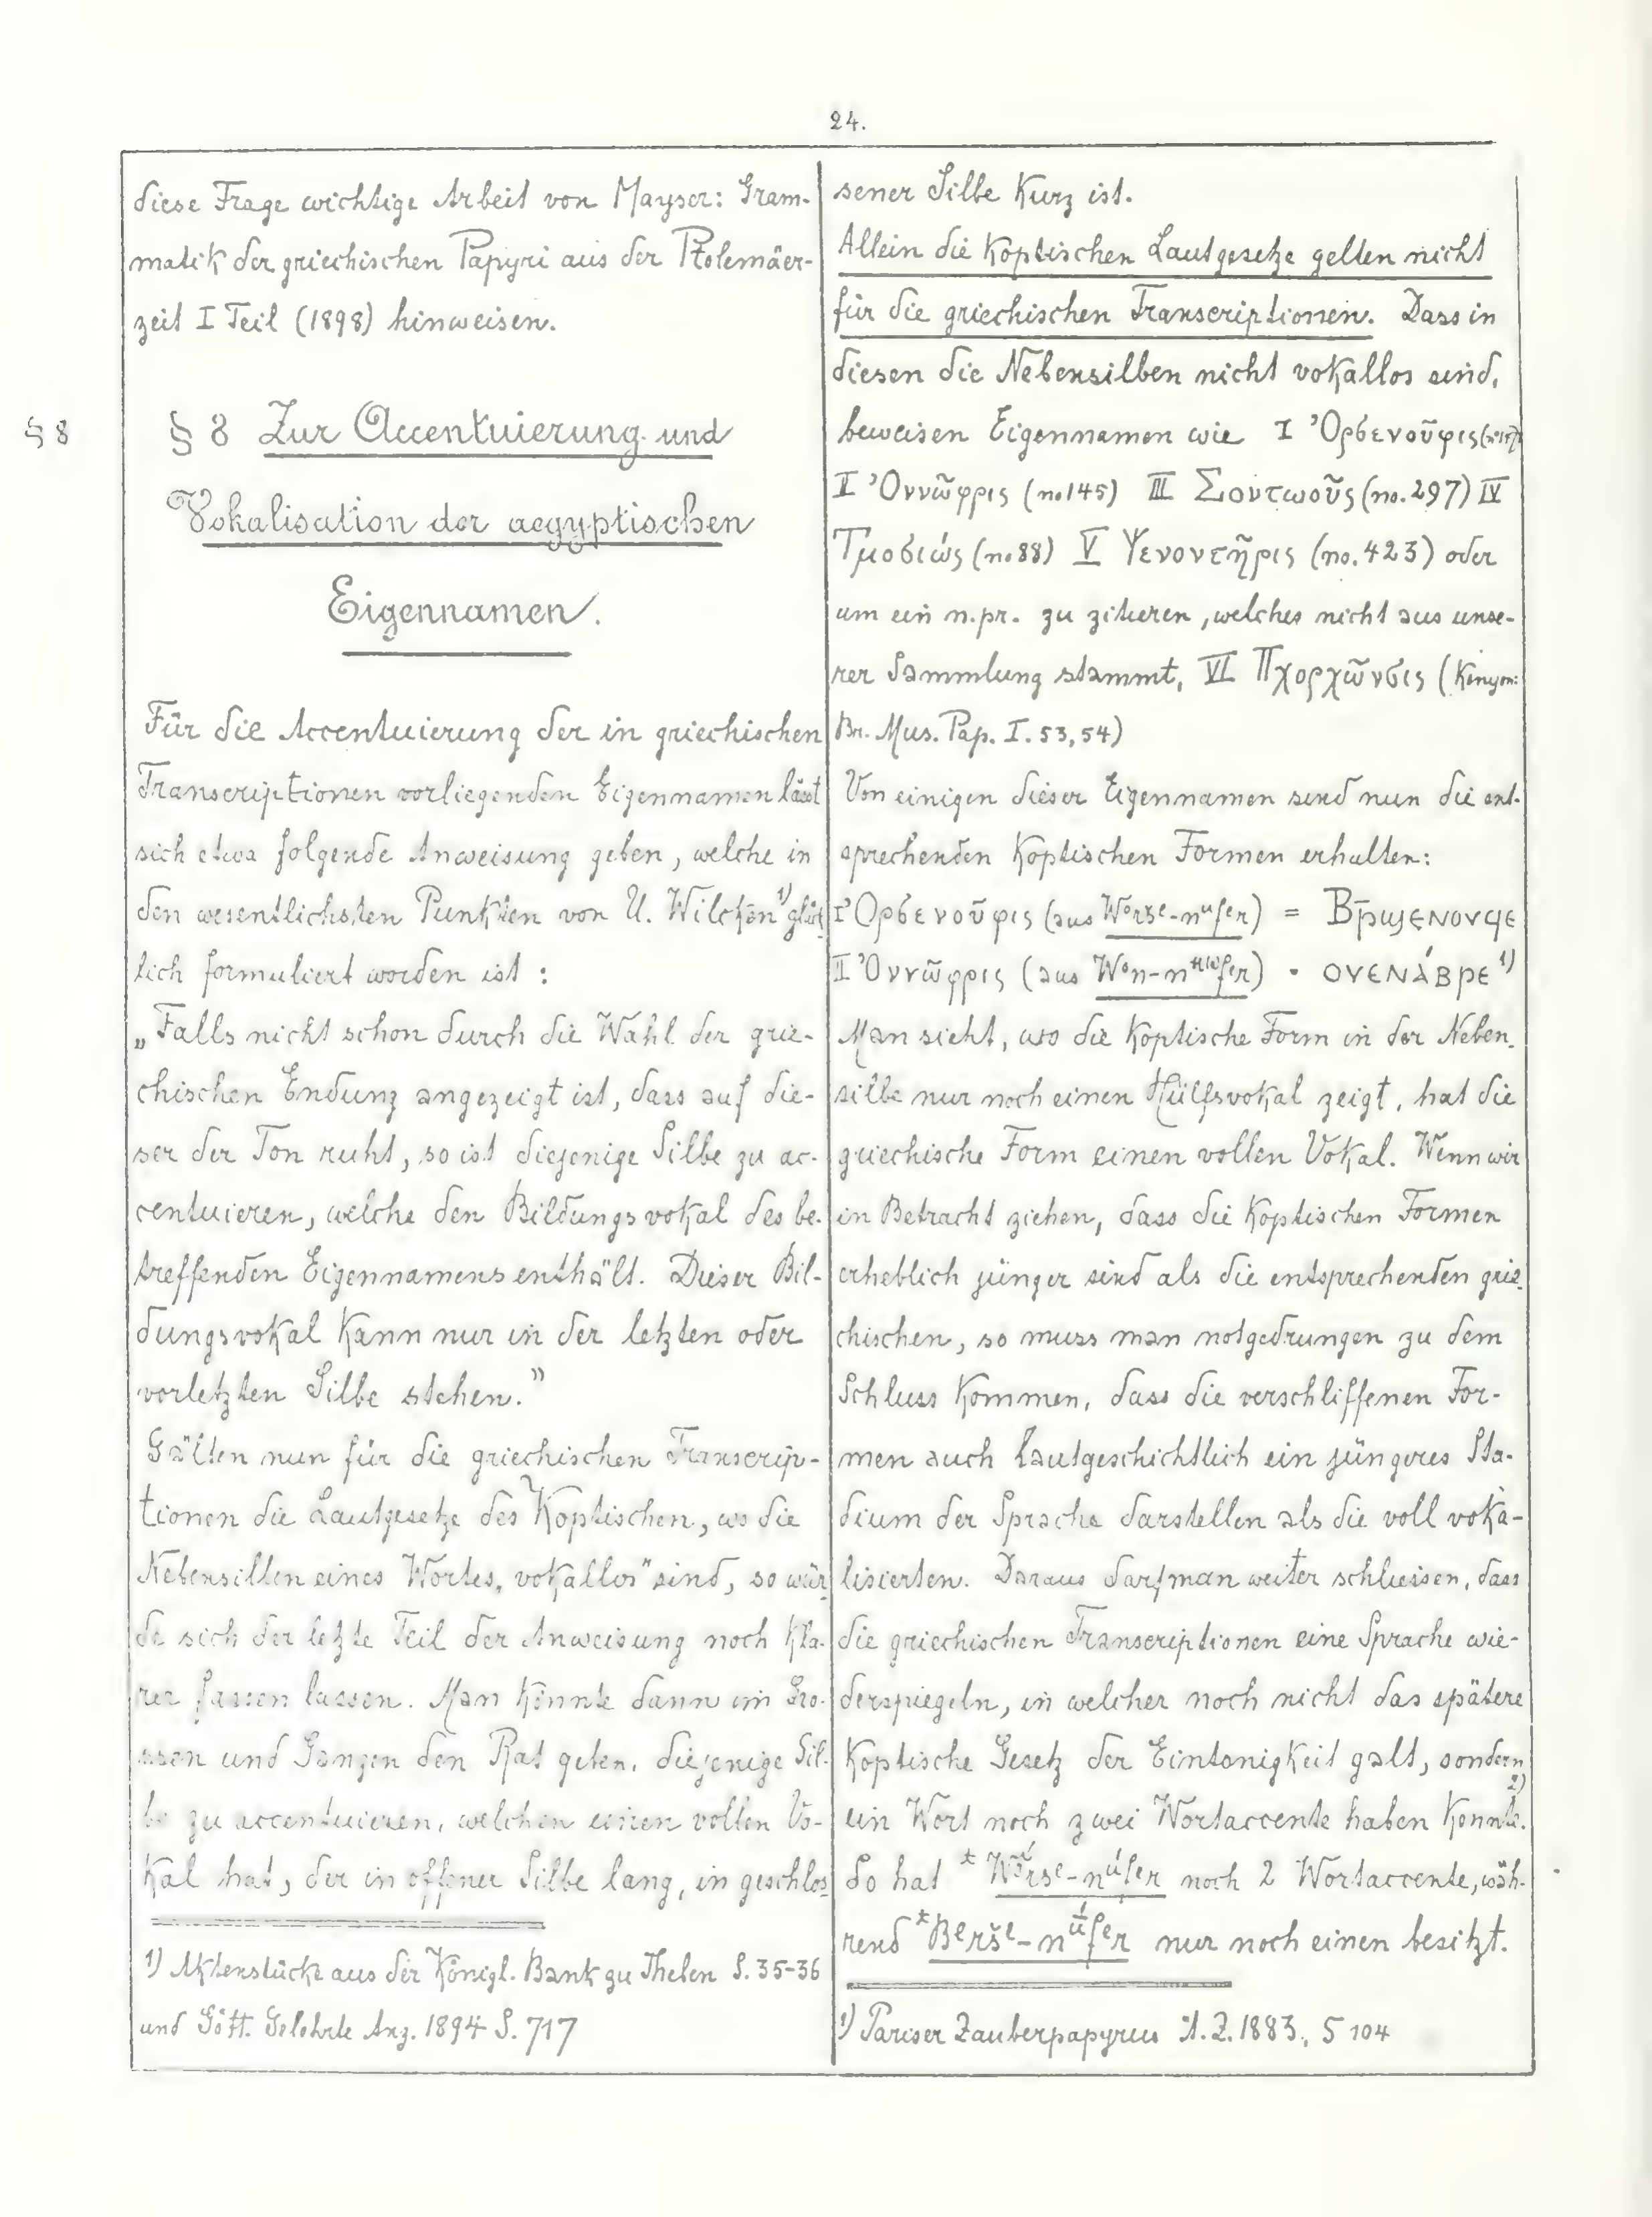 24.
diese Frage wichtige Arbeit von Mayser: Gram-
matik der griechischen Papyri aus der Ptolemäer-
zeit I Teil (1898) hinweisen.
§ 8
§ 8 Zur Accentuierung und
Vokalisation der aegyptischen
Eigennamen.
Für die Accentuierung der in griechischen
Transcriptionen vorliegenden Eigennamen lässt
sich etwa folgende Anweisung geben, welche in
den wesentlichsten Punkten von U. Wilcken 1) glück-
lich formuliert worden ist :
„Falls nicht schon durch die Wahl der grie-
chischen Endung angezeigt ist, dass auf die-
ser der Ton ruht, so ist diejenige Silbe zu ac-
centuieren, welche den Bildungsvokal des be-
treffenden Eigennamens enthält. Dieser Bil-
dungsvokal kann nur in der letzten oder
vorletzten Silbe stehen."
Gälten nun für die griechischen Transcrip-
tionen die Lautgesetze des Koptischen, wo die
Nebensilben eines Wortes „vokallos" sind, so wür-
de sich der letzte Teil der Anweisung noch kla-
rer fassen lassen. Man könnte dann im Gro-
ssen und Ganzen den Rat geben, diejenige Sil-
be zu accentuieren, welchen einen vollen Vo-
kal hat, der in offener Silbe lang, in geschlos-
1) Aktenstücke aus der Königl. Bank zu Theben S. 35-36
und Gött. Gelehrte Anz. 1894 S. 717
sener Silbe kurz ist.
Allein die koptischen Lautgesetze gelten nicht
für die griechischen Transcriptionen. Dass in
diesen die Nebensilben nicht vokallos sind,
beweisen Eigennamen wie I Ὀρσενοῦφις
II Ὀννῶφρις (no 145) III Σοντωοῦς (no. 297) IV
Τμοσιώς (no 88) V Ψενοντῆρις (no. 423) oder
um ein n.pr. zu zitieren, welches nicht aus unse-
rer Sammlung stammt, VI Πχορχῶνσις (Kenyon:
Br. Mus. Pap. I. 53, 54)
Von einigen dieser Eigennamen sind nun die ent-
sprechenden koptischen Formen erhalten:
I Ὀρσενοῦφις (aus Worše-nufer) = Ⲃⲣ̄ϣⲉⲛⲟⲩϥⲉ
II Ὀννῶφρις (aus Won-nfer) = ⲟⲩⲉⲛⲁ́ⲃⲣⲉ 1)
Man sieht, wo die koptische Form in der Neben-
silbe nur noch einen Hülfsvokal zeigt, hat die
griechische Form einen vollen Vokal. Wenn wir
in Betracht ziehen, dass die koptischen Formen
erheblich jünger sind als die entsprechenden grie-
chischen, so muss man notgedrungen zu dem
Schluss kommen, dass die verschliffenen For-
men auch lautgeschichtlich ein jüngeres Sta-
dium der Sprache darstellen als die voll voka-
lisierten. Daraus darf man weiter schliessen, dass
die griechischen Transcriptionen eine Sprache wie-
derspiegeln, in welcher noch nicht das spätere
koptische Gesetz der Eintonigkeit galt, sondern
ein Wort noch zwei Wortaccente haben konnte. 2)
So hat * Wórse-núfer noch 2 Wortaccente, wäh-
rend * Berše-núfer nur noch einen besitzt.
1) Pariser Zauberpapyrus Ä. Z. 1883, S 104